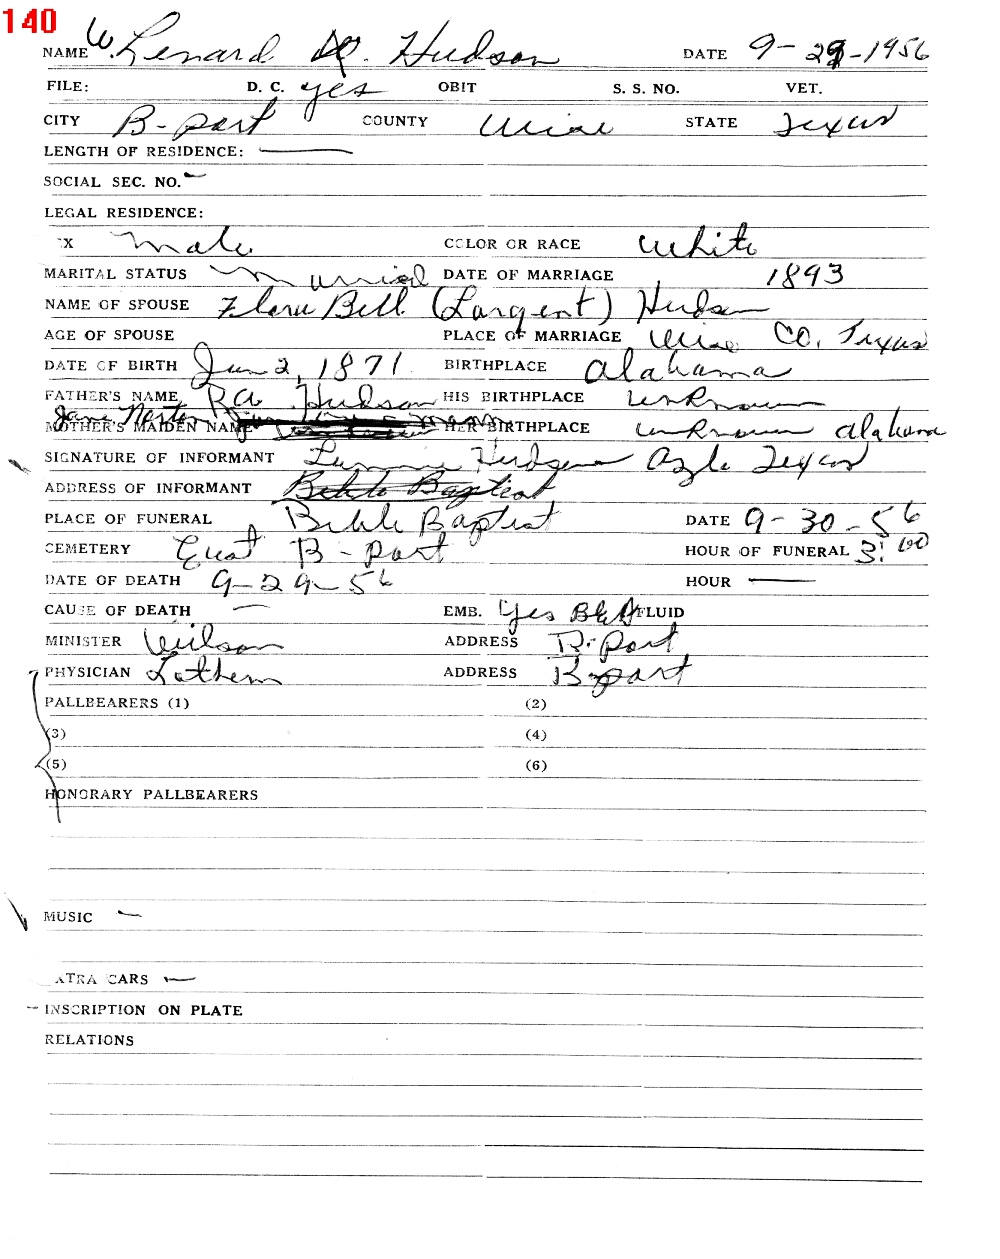 140
NAME W. Lenard W. Hudson DATE 9-29-1956
FILE: D. C. yes OBIT S. S. NO. VET.
CITY B-port COUNTY Wise STATE Texas
LENGTH OF RESIDENCE: —
SOCIAL SEC. NO. —
LEGAL RESIDENCE:
EX male COLOR OR RACE White
MARITAL STATUS married DATE OF MARRIAGE 1893
NAME OF SPOUSE Flora Bell (Largent) Hudson
AGE OF SPOUSE PLACE OF MARRIAGE Wise CO. Texas
DATE OF BIRTH Jun 2, 1871 BIRTHPLACE Alabama
FATHER'S NAME R.A. Hudson HIS BIRTHPLACE unknown
Jane Norton
MOTHER'S MAIDEN NAME HER BIRTHPLACE unknown Alabama
SIGNATURE OF INFORMANT Azle Texas
ADDRESS OF INFORMANT Bible Baptist
PLACE OF FUNERAL Bible Baptist DATE 9-30-56
CEMETERY East B-port HOUR OF FUNERAL 3:00
DATE OF DEATH 9-29-56 HOUR —
CAUSE OF DEATH — EMB. Yes FLUID
MINISTER Wilson ADDRESS B-port
PHYSICIAN Lathem ADDRESS B-port
PALLBEARERS (1) (2)
(3) (4)
(5) (6)
HONORARY PALLBEARERS
MUSIC —
XTRA CARS —
INSCRIPTION ON PLATE
RELATIONS